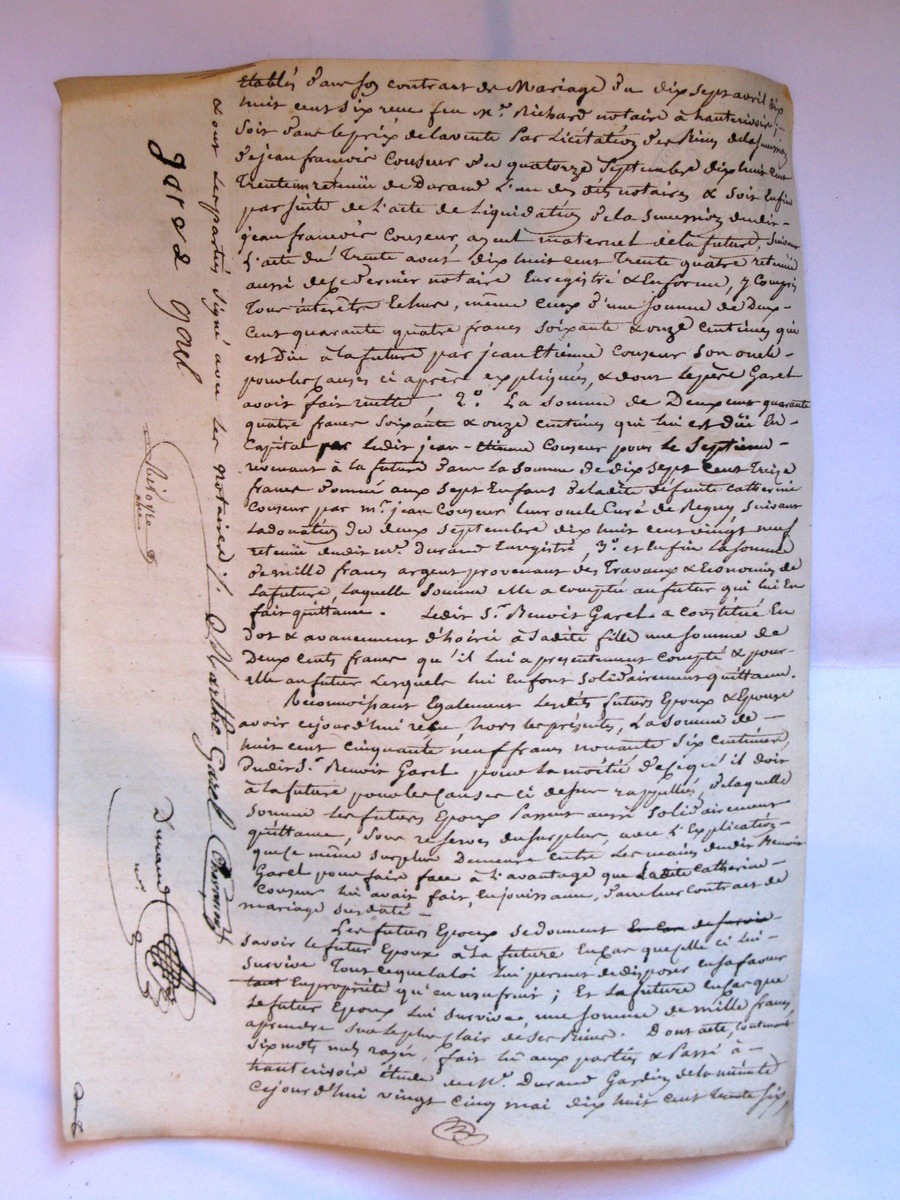 établis dans son contract de Mariage du dix sept avril dix
huit cent six reçu feu Me. Richard notaire à hauterivoire ;
Soit dans le prix de la vente Par Licitation des Biens de la succession
de jean francois Couseur du quatorze Septembre dix huit cent
Trente un retenüe de Durand L'un des dts notaires & Soit Enfin
par suite de L'acte de Liquidation de la Succession dudit
jean francois Couseur, ayeul maternel de la future, Suivant
L'acte du Trente aout dix huit cent Trente quatre retenüe
aussi de ce dernier notaire Enregistré & En forme, y Compris
Tous intérêts Echus, même ceux d'une Somme de Deux
Cent quarante quatre francs Soixante & onze Centimes qui
est düe à la future par jean Etienne Couseur Son oncle
pour les Causes ci après expliquées, & dont le père Garel
avoit fait recette 2o. La Somme de Deux cent quarante
quatre francs Soixante & onze centimes qui lui est düe En
Capital par Ledit jean-Etienne Couseur pour le Septieme
revenant à la future dans la Somme de dix Sept Cent Treize
francs donnée aux Sept Enfants de ladite défunte Catherine
Couseur par mr. jean Couseur Leur oncle Curé de Regny Suivant
La donation du deux Septembre dix huit cent vingt neuf
retenüe dudit me. Durand Enregistré, 3o. et Enfin La Somme
de mille francs argent provenant des Travaux & Economies de
La future, Laquelle Somme elle a compté au futur qui lui En
fait quittance. Ledit Sr. Benoit Garel a Constitué En
Dot & avancement d'hoirie à Sadite fille une Somme de
Deux Cents francs qu'il lui a présentement Compté & pour
elle au futur Lesquels lui En font Solidairement quittance.
Reconnoissant Egalement Lesdits futurs Epoux & Epouse
avoir cejourd'hui reçu hors les présentes, La Somme de
huit cent Cinquante neuf francs nonante Six Centimes,
Dudit Sr. Benoit Garel pour la moitié de ce qu'il doit
à La future pour les Causes ci dessus rappellées, de laquelle
Somme les futurs Epoux Passent aussi Solidairement
quittance, Sous réserves du Surplus, avec L'Explication
que ce même Surplus Demeure entre Les mains dudit Benoit
Garel pour faire face à L'avantage que Ladite Catherine
Couseur lui avait fait, En jouissance, dans leur Contract de
mariage Susdaté
Les futurs Epoux Se donnent En Cas de Survie
Savoir le futur Epoux à La future En Cas que elle ci Lui
Survive Tout ce que La loi Lui permet de disposer en Sa faveur
tant En propriété qu'en usufruit ; Et La future en Cas que
Le futur Epoux Lui Survive une Somme de mille francs
à prendre Sur le plus Clair de Ses Biens. Dont acte, Contenant
Six mots nuls rayés, fait Lu aux parties & Passé à
hauterivoire étude de Me. Durand Gardien de la minute
Cejourd'hui vingt cinq mai dix huit cent Trente Six,
& ont Les parties Signé avec les notaires ./.
Marthe Garel
garel
Durand
nre.